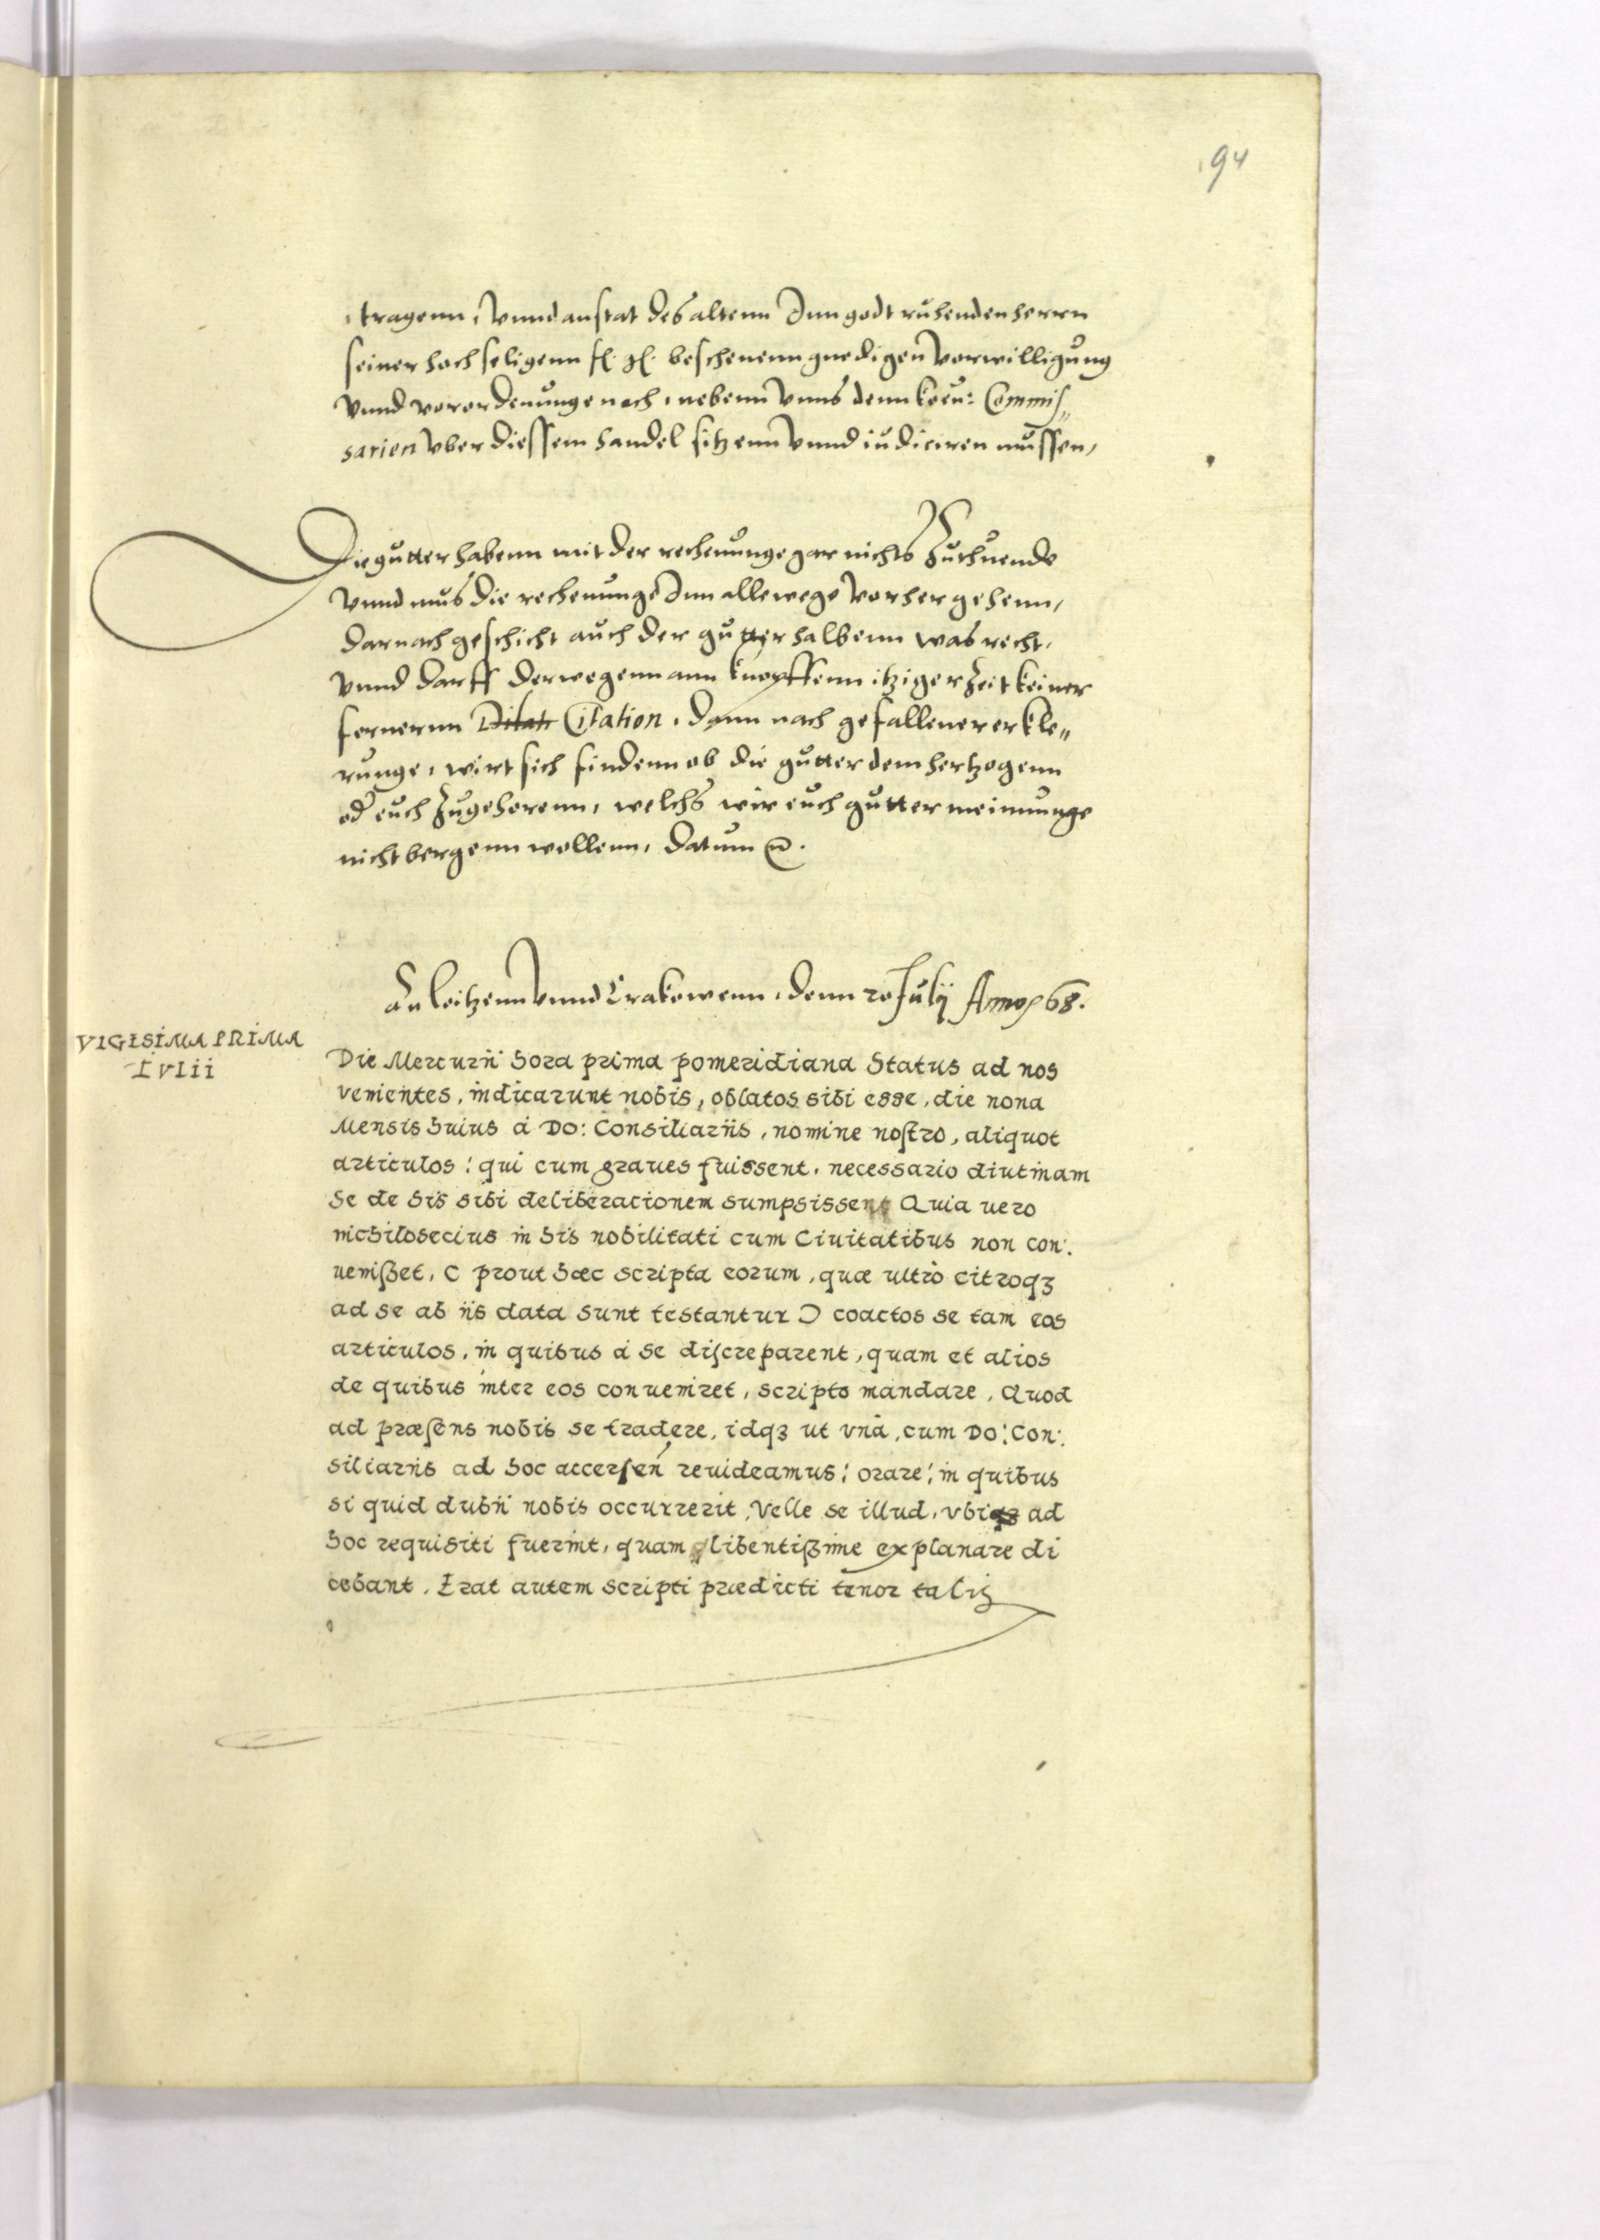 94
tragenn, vnnd anstat des altenn Inn godt ruhenden herrn
seiner hochseligenn fl. gl. beschenenn gnedigen vorwilligung
vnnd verordenunge nach, nebenn vnns denn kön: Commis„
sarien vber diessem handel sitzenn vnnd iudiciren mussen,
Die gutter habenn mit der rechenunge gar nichts zuthuende
vnnd mus die rechenunge Inn allewege vorher gehenn,
darnach geschicht auch der gutter halbenn was recht,
vnnd darff derwegenn ann knopffenn itziger zeit keiner
fernernn Dilati Citation, dann nach gefallener erkle„
runge, wirt sich findenn ob die gutter dem hertzogenn
od euch zugehorenn, welchs wir euch gutter meinunge
nicht bergenn wollenn, datum
Zu leitzenn vnnd Crakowenn, denn 20 Julij Anno 68.
VIGESIMA PRIMA
IVLii
Die Mercurii hora prima pomeridiana Status ad nos
venientes, indicarunt nobis, oblatos sibi esse, die nona
Mensis huius á DO: Consiliariis, nomine nostro, aliquot
articulos: qui cum graues fuissent, necessario diutinam
se de his sibi deliberationem sumpsissent Quia uero
nichilosecius in his nobilitati cum Ciuitatibus non con:
uenißet, C prout hæc scripta eorum, quæ ultrò citroqȝ
ad se ab iis data sunt testantur Ɔ coactos se tam eos
articulos, in quibus á se discreparent, quam et alios
de quibus inter eos conueniret, scripto mandare, Quod
ad præsens nobis se tradere, idqȝ ut vná, cum DO: Con:
siliariis ad hoc accersen reuideamus: orare: in quibus
si quid dubii nobis occurrerit, Velle se illud, vbi ad
hoc requisiti fuerint, quam libentißime explanare di
cebant. Erat autem scripti prædicti tenor talis